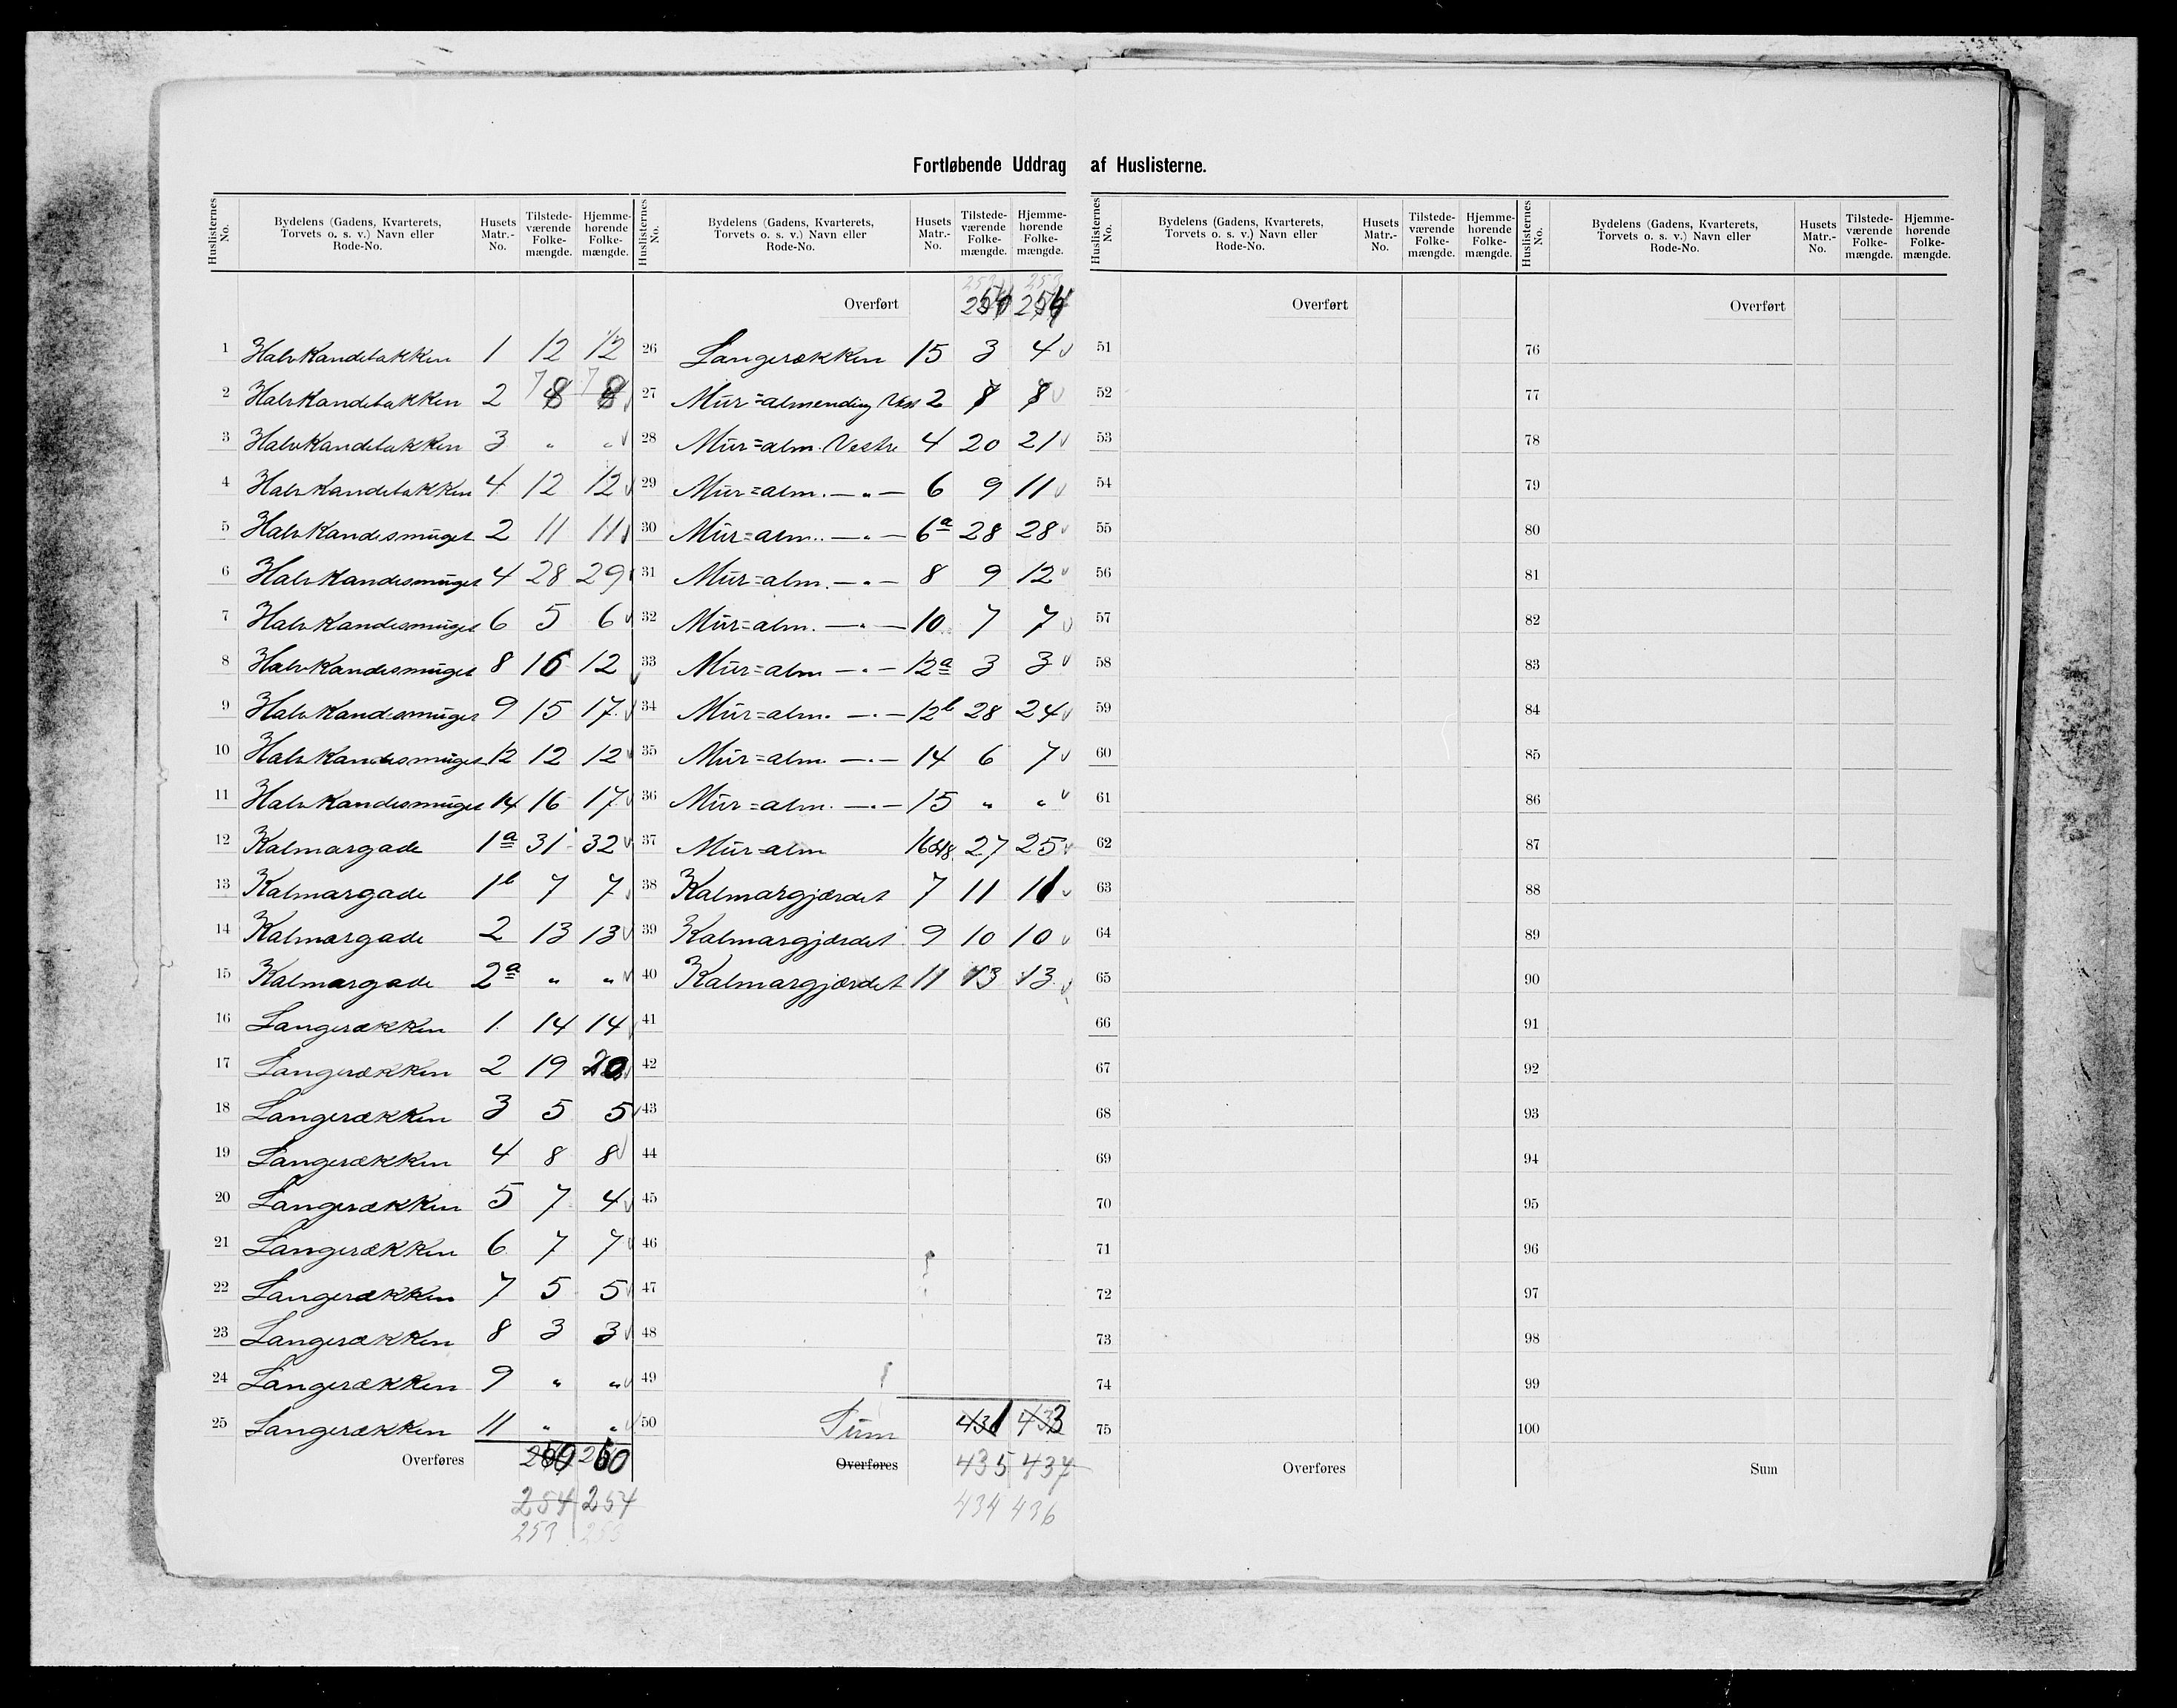 Fortløbende Uddrag af Huslisterne.
Huslisternes No. | Bydelens (Gadens, Kvarterets, Torvets o. s. v.) Navn eller Rode-No. | Husets Matr.-No. | Tilstedeværende Folkemængde. | Hjemmehørende Folkemængde.
1 Halvkandebakken 1 12 12
2 Halvkandebakken 2 7 8 7 8
3 Halvkandebakken 3 " "
4 Halvkandebakken 4 12 12
5 Halvkandesmuget 2 11 11
6 Halvkandesmuget 4 28 29
7 Halvkandesmuget 6 5 6
8 Halvkandesmuget 8 16 12
9 Halvkandesmuget 9 15 17
10 Halvkandesmuget 12 12 12
11 Halvkandesmuget 14 16 17
12 Kalmargade 1a 31 32
13 Kalmargade 1b 7 7
14 Kalmargade 2 13 13
15 Kalmargade 2a " "
16 Langerækken 1. 14 14
17 Langerækken 2 19 20
18 Langerækken 3 5 5
19 Langerækken 4 8 8
20 Langerækken 5 7 4
21 Langerækken 6 7 7
22 Langerækken 7 5 5
23 Langerækken 8 3 3
24 Langerækken 9 " "
25 Langerækken 11 " "
Overføres 250 250
254 254
253 253
Huslisternes No. | Bydelens (Gadens, Kvarterets, Torvets o. s. v.) Navn eller Rode-No. | Husets Matr.-No. | Tilstedeværende Folkemængde. | Hjemmehørende Folkemængde.
253 253
Overført 254 254
26 Langerækken 15 3 4
27 Mür=almending Vest 2 7 7
28 Mür=alm. Vestre 4 20 21
29 Mür=alm. —"— 6 9 11
30 Mür=alm. —"— 6a 28 28
31 Mür=alm. —"— 8 9 12
32 Mür=alm. —"— 10 7 7
33 Mür=alm —"— 12a 3 3
34 Mür=alm. —"— 12b 28 24
35 Mür=alm. —"— 14 6 7
36 Mür=alm. —"— 15 " "
37 Mür=alm 16&18 27 25
38 Kalmargjærdet 7 11 11
39 Kalmargjærdet 9 10 10
40 Kalmargjærdet 11 13 13
41
42
43
44
45
46
47
48
49
50 Sum 431 433
Overføres 435 437
434 436
Huslisternes No. | Bydelens (Gadens, Kvarterets, Torvets o. s. v.) Navn eller Rode-No. | Husets Matr.-No. | Tilstedeværende Folkemængde. | Hjemmehørende Folkemængde.
Overført
51
52
53
54
55
56
57
58
59
60
61
62
63
64
65
66
67
68
69
70
71
72
73
74
75
Overføres
Huslisternes No. | Bydelens (Gadens, Kvarterets, Torvets o. s. v.) Navn eller Rode-No. | Husets Matr.-No. | Tilstedeværende Folkemængde. | Hjemmehørende Folkemængde.
Overført
76
77
78
79
80
81
82
83
84
85
86
87
88
89
90
91
92
93
94
95
96
97
98
99
100
Sum